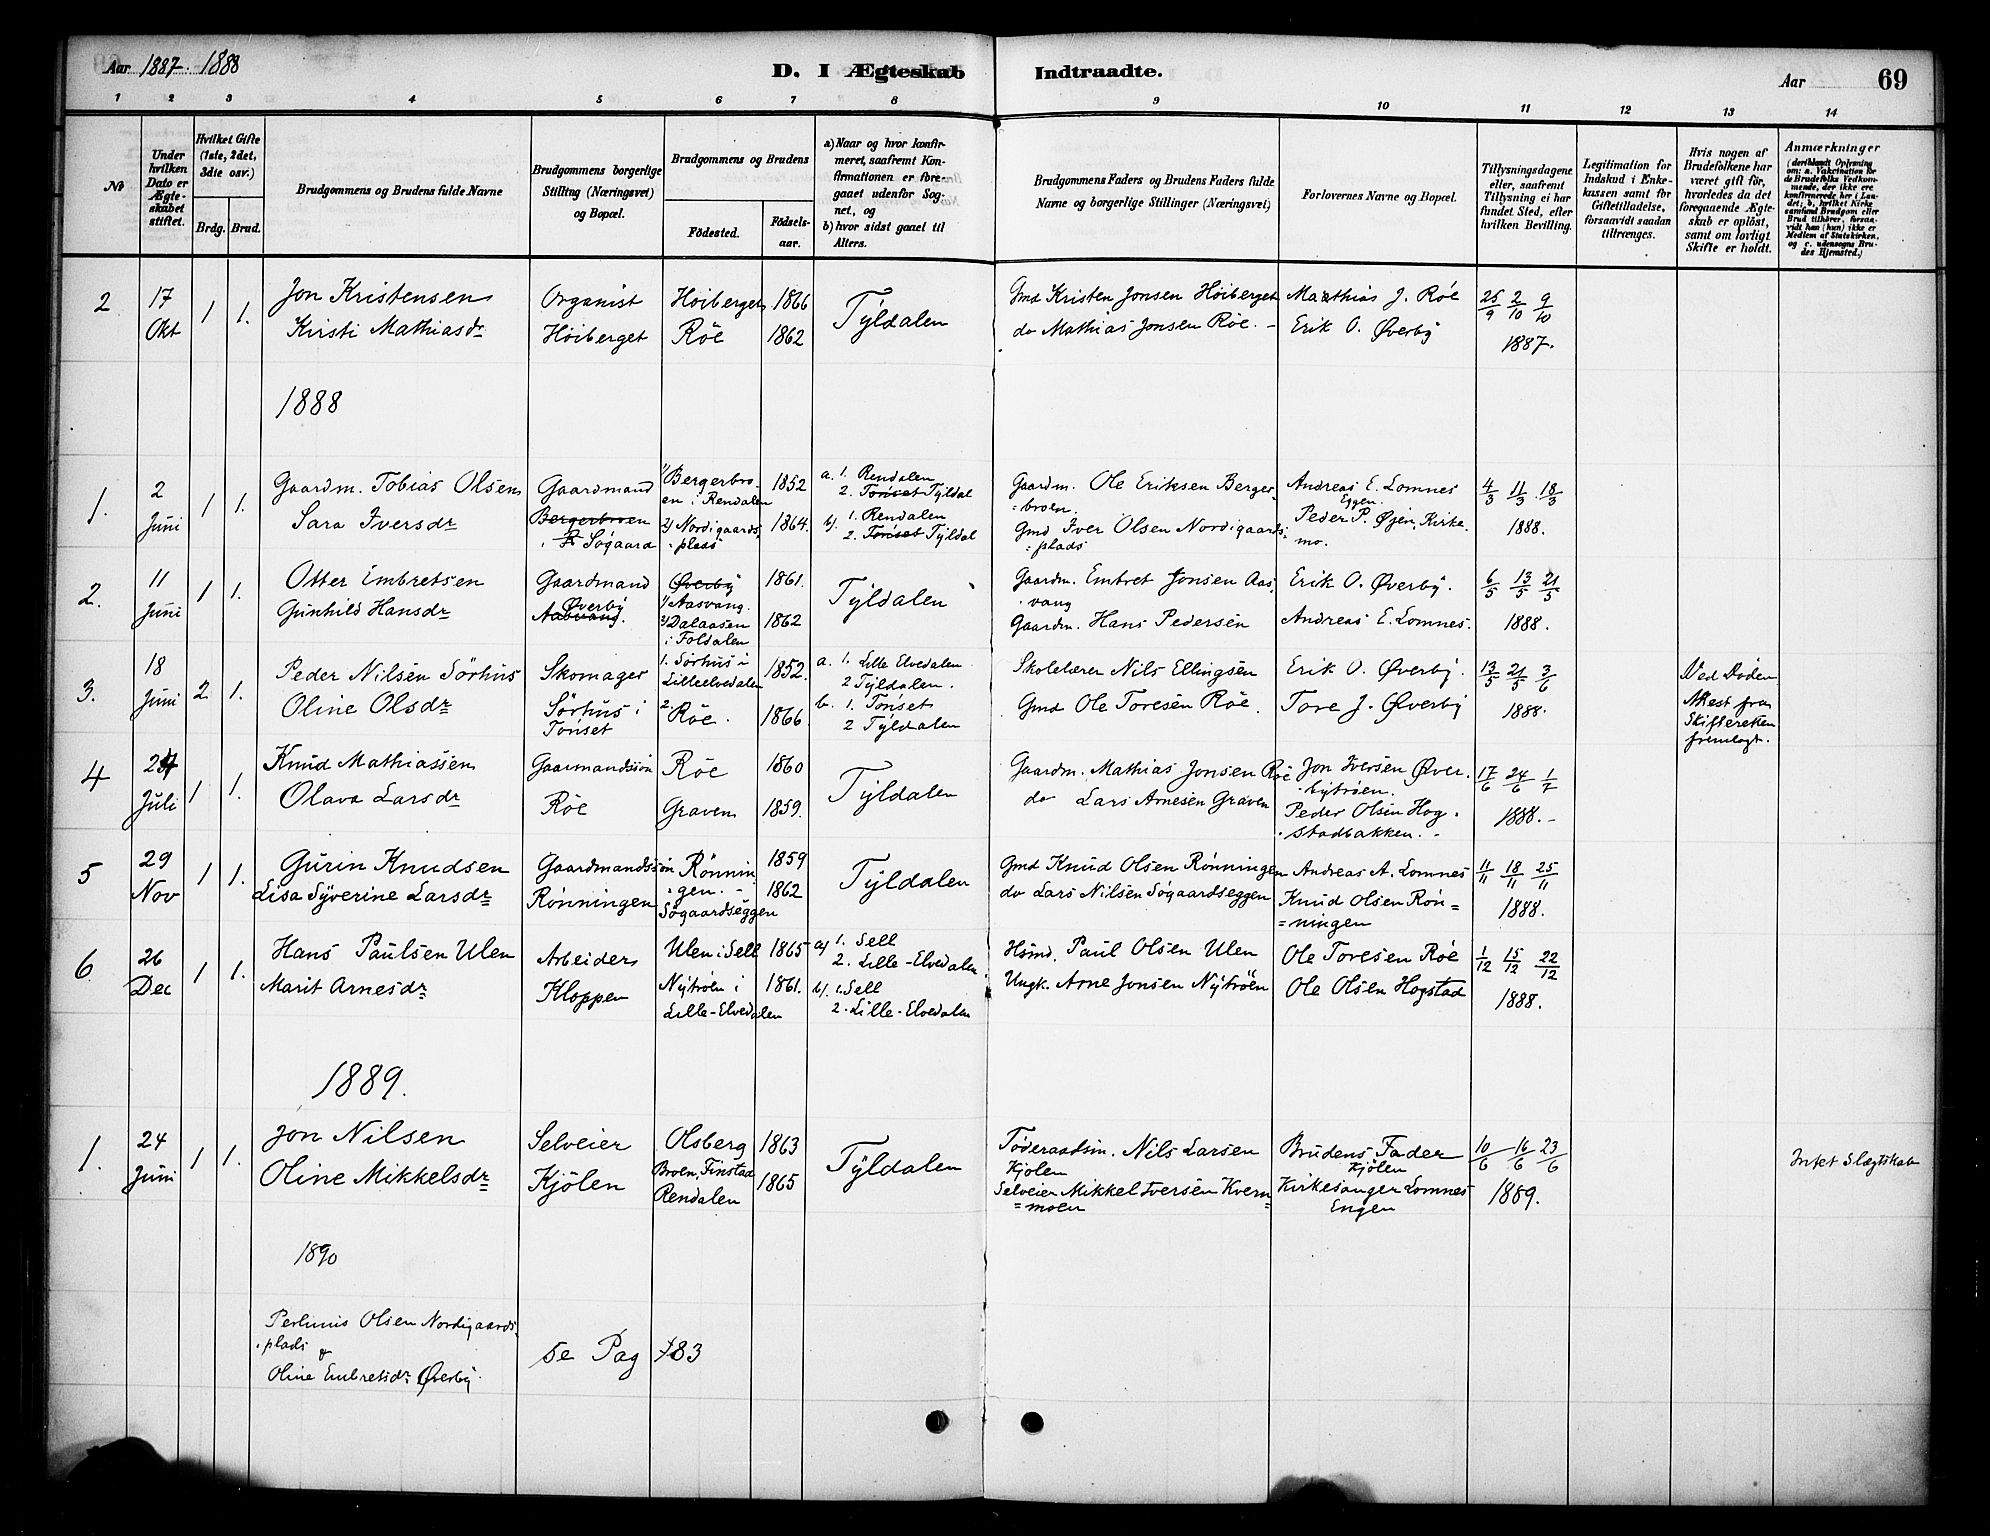 Aar 1887. 1888
D. I Ægteskab Indtraadte.
Aar
69
1 2 3 4 5 6 7 8 9 10 11 12 13 14
No
Under hvilken Dato er Ægteskabet stiftet.
Hvilket Gifte (1ste, 2det, 3die osv.)
Brdg. Brud.
Brudgommens og Brudens fulde Navne
Brudgommens borgerlige Stilling (Næringsvei) og Bopæl.
Brudgommens og Brudens
Fødested.
Fødselsaar.
a) Naar og hvor konfirmeret, saafremt Konfirmationen er foregaaet udenfor Sognet, og
b) hvor sidst gaaet til Alters.
Brudgommens Faders og Brudens Faders fulde Navne og borgerlige Stillinger (Næringsvei)
Forlovernes Navne og Bopæl.
Tillysningsdagene eller, saafremt Tillysning ei har fundet Sted, efter hvilken Bevilling.
Legitimation for Indskud i Enkekassen samt for Giftetilladelse, forsaavidt saadan tiltrænges.
Hvis nogen af Brudefolkene har været gift før, hvorledes da det foregaaende Ægteskab er opløst, samt om lovligt Skifte er holdt.
Anmærkninger
(deriblandt Oplysning om: a. Vakcination for de Brudefolks Vedkommende, der ikke ere konfirmerede her i Landet; b. hvilket Kirkesamfund Brudgom eller Brud tilhører, forsaavidt han (hun) ikke er Medlem af Statskirken, og c. udensogns Brudes Hjemsted.)
2 17 Okt 1 1. Jon Kristensen Organist Höiberget 1866 Tyldalen Gmd Kristen Jonsen Höiberget Mathias J. Røe 25/9 2/10 9/10
Kirsti Mathiasdr Höiberget Röe 1862 do Mathias Jonsen Røe. - Erik O. Øverby 1887.
1888
1. 2 Juni 1 1. Gaardm. Tobias Olsen Gaardmand 1) Bergerbroen i Rendalen 1852 a. 1. Rendalen 2. Tønset Tyldal Gaardm. Ole Eriksen Bergerbroen. Andreas E. Lomnes Eggen. 4/3 11/3 18/3
Sara Iversdr Bergerbroen Søgaard 2) Nordigaardsplads 1864. b. 1. Rendalen 2. Tønset Tyldal Gmd Iver Olsen Nordigaardsplads Peder P. Øjen, Kirkemo. 1888.
2. 11 Juni 1 1. Otter Embretsen Gaardmand Øverby 1) Aasvang. 1861. Tyldalen Gaardm. Embret Jonsen Aasvang Erik O. Øverby. 6/5 13/5 21/5
Gunhild Hansdr Øverby Aasvang. 2) Dalaasen i Foldalen 1862 Gaardm. Hans Pedersen Andreas E. Lomnes. 1888.
3. 18 Juni 2 1. Peder Nilsen Sörhus Skomager 1. Sørhus i Lilleelvedalen 1852. a. 1. Lille Elvedalen 2 Tyldalen. Skolelærer Nils Ellingsen Erik O. Øverby. 13/5 21/5 3/6 Ved Døden
Oline Olsdr Sørhus i Tönset 2. Röe. 1866 b. 1. Tønset 2 Tyldalen Gmd Ole Toresen Røe. Tore J. Øverby 1888. Attest fra Skifteretten fremlagt.
4 24 Juli 1 1. Knud Mathiassen Gaarmandssön Röe 1860 Tyldalen Gaardm. Mathias Jonsen Røe Jon Iversen Øverbytrøen. 17/6 24/6 1/7
Olava Larsdr Röe Graven 1859. do Lars Arnesen Graven Peder Olsen Hogstadbakken. - 1888. -
5 29 Nov 1 1. Gurin Knudsen Gaardmandssön Rönningen. - 1859 Tyldalen Gmd Knud Olsen Rønningen Andreas A. Lomnes 11/11 18/11 25/11
Lisa Syverine Larsdr Rønningen Søgaardseggen 1862 do Lars Nilsen Søgaardseggen Knud Olsen Rønningen 1888.
6. 26 Dec 1 1. Hans Paulsen Ulen Arbeider Ulen i Sell 1865 a) 1. Sell 2. Lille-Elvedalen Hsmd. Paul Olsen Ulen Ole Toresen Røe 1/12 15/12 22/12
Marit Arnesdr Kloppen Nytrøen i Lille-Elvedalen 1861. b). 1. Sell 2. Lille-Elvedalen Ungk. Arne Jonsen Nytröen Ole Olsen Hogstad 1888.
1889.
1. 24 Juni 1 1. Jon Nilsen Selveier Olsberg 1863 Tyldalen Føderaadsm. Nils Larsen Kjølen Brudens Fader Kjølen 10/6 16/6 23/6
Oline Mikkelsdr Kjölen Broen, Finstad Rendalen 1865 Selveier Mikkel Iversen Kvernmoen Kirkesanger Lomnes Engen 1889. Intet Slægtskab
1890
Perlinus Olsen Nordigaardsplads
&
Oline Embretsdr Øverby. se Pag 183